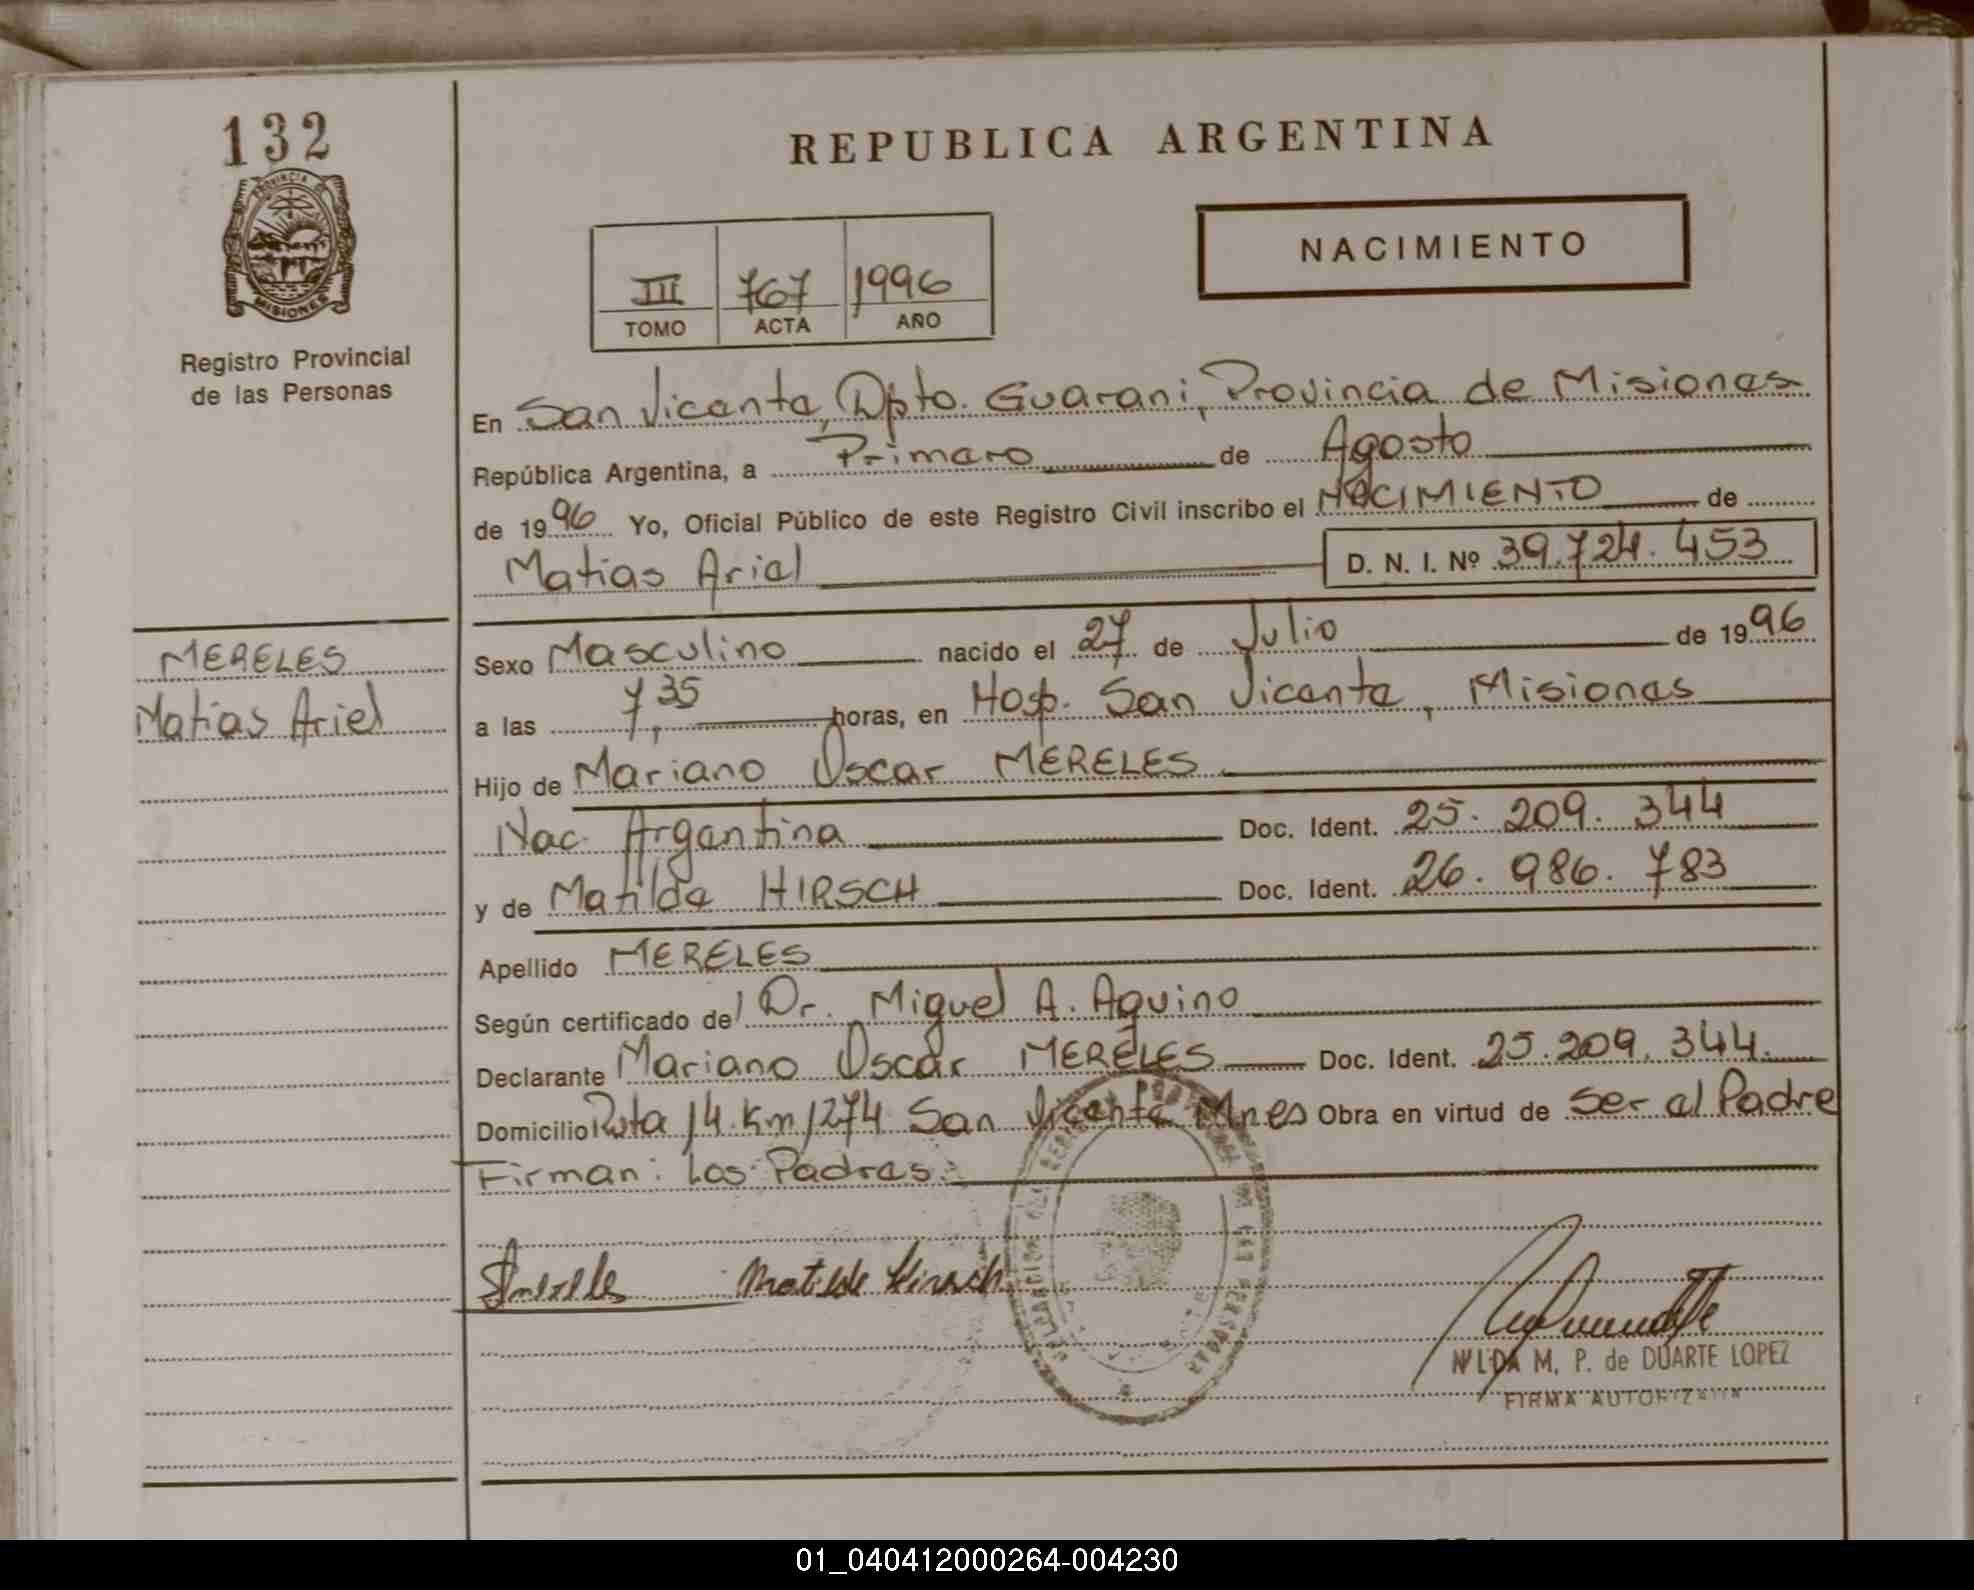 132
REPUBLICA ARGENTINA
PROVINCIA DE
MISIONES
Registro Provincial
de las Personas
NACIMIENTO
III 767 1996
TOMO ACTA AÑO
En San Vicente, Dpto. Guarani, Provincia de Misiones
República Argentina, a Primero de Agosto
de 1996 Yo, Oficial Público de este Registro Civil inscribo el NACIMIENTO de
Matias Ariel D. N. I. Nº 39.724.453
MERELES
Matias Ariel
Sexo Masculino nacido el 27 de Julio de 1996
a las 7,35 horas, en Hosp. San Vicente, Misiones
Hijo de Mariano Oscar MERELES
Nac. Argentina Doc. Ident. 25. 209. 344
y de Matilde HIRSCH Doc. Ident. 26. 986. 783
Apellido MERELES
Según certificado del Dr. Miguel A. Aquino
Declarante Mariano Oscar MERELES Doc. Ident. 25.209.344.
Domicilio Ruta 14 Km 1274 San Vicente Mnes Obra en virtud de Ser el Padre
Firman: Los Padres.
Matilde Hirsch
NILDA M. P. de DUARTE LOPEZ
FIRMA AUTORIZADA
01_040412000264-004230